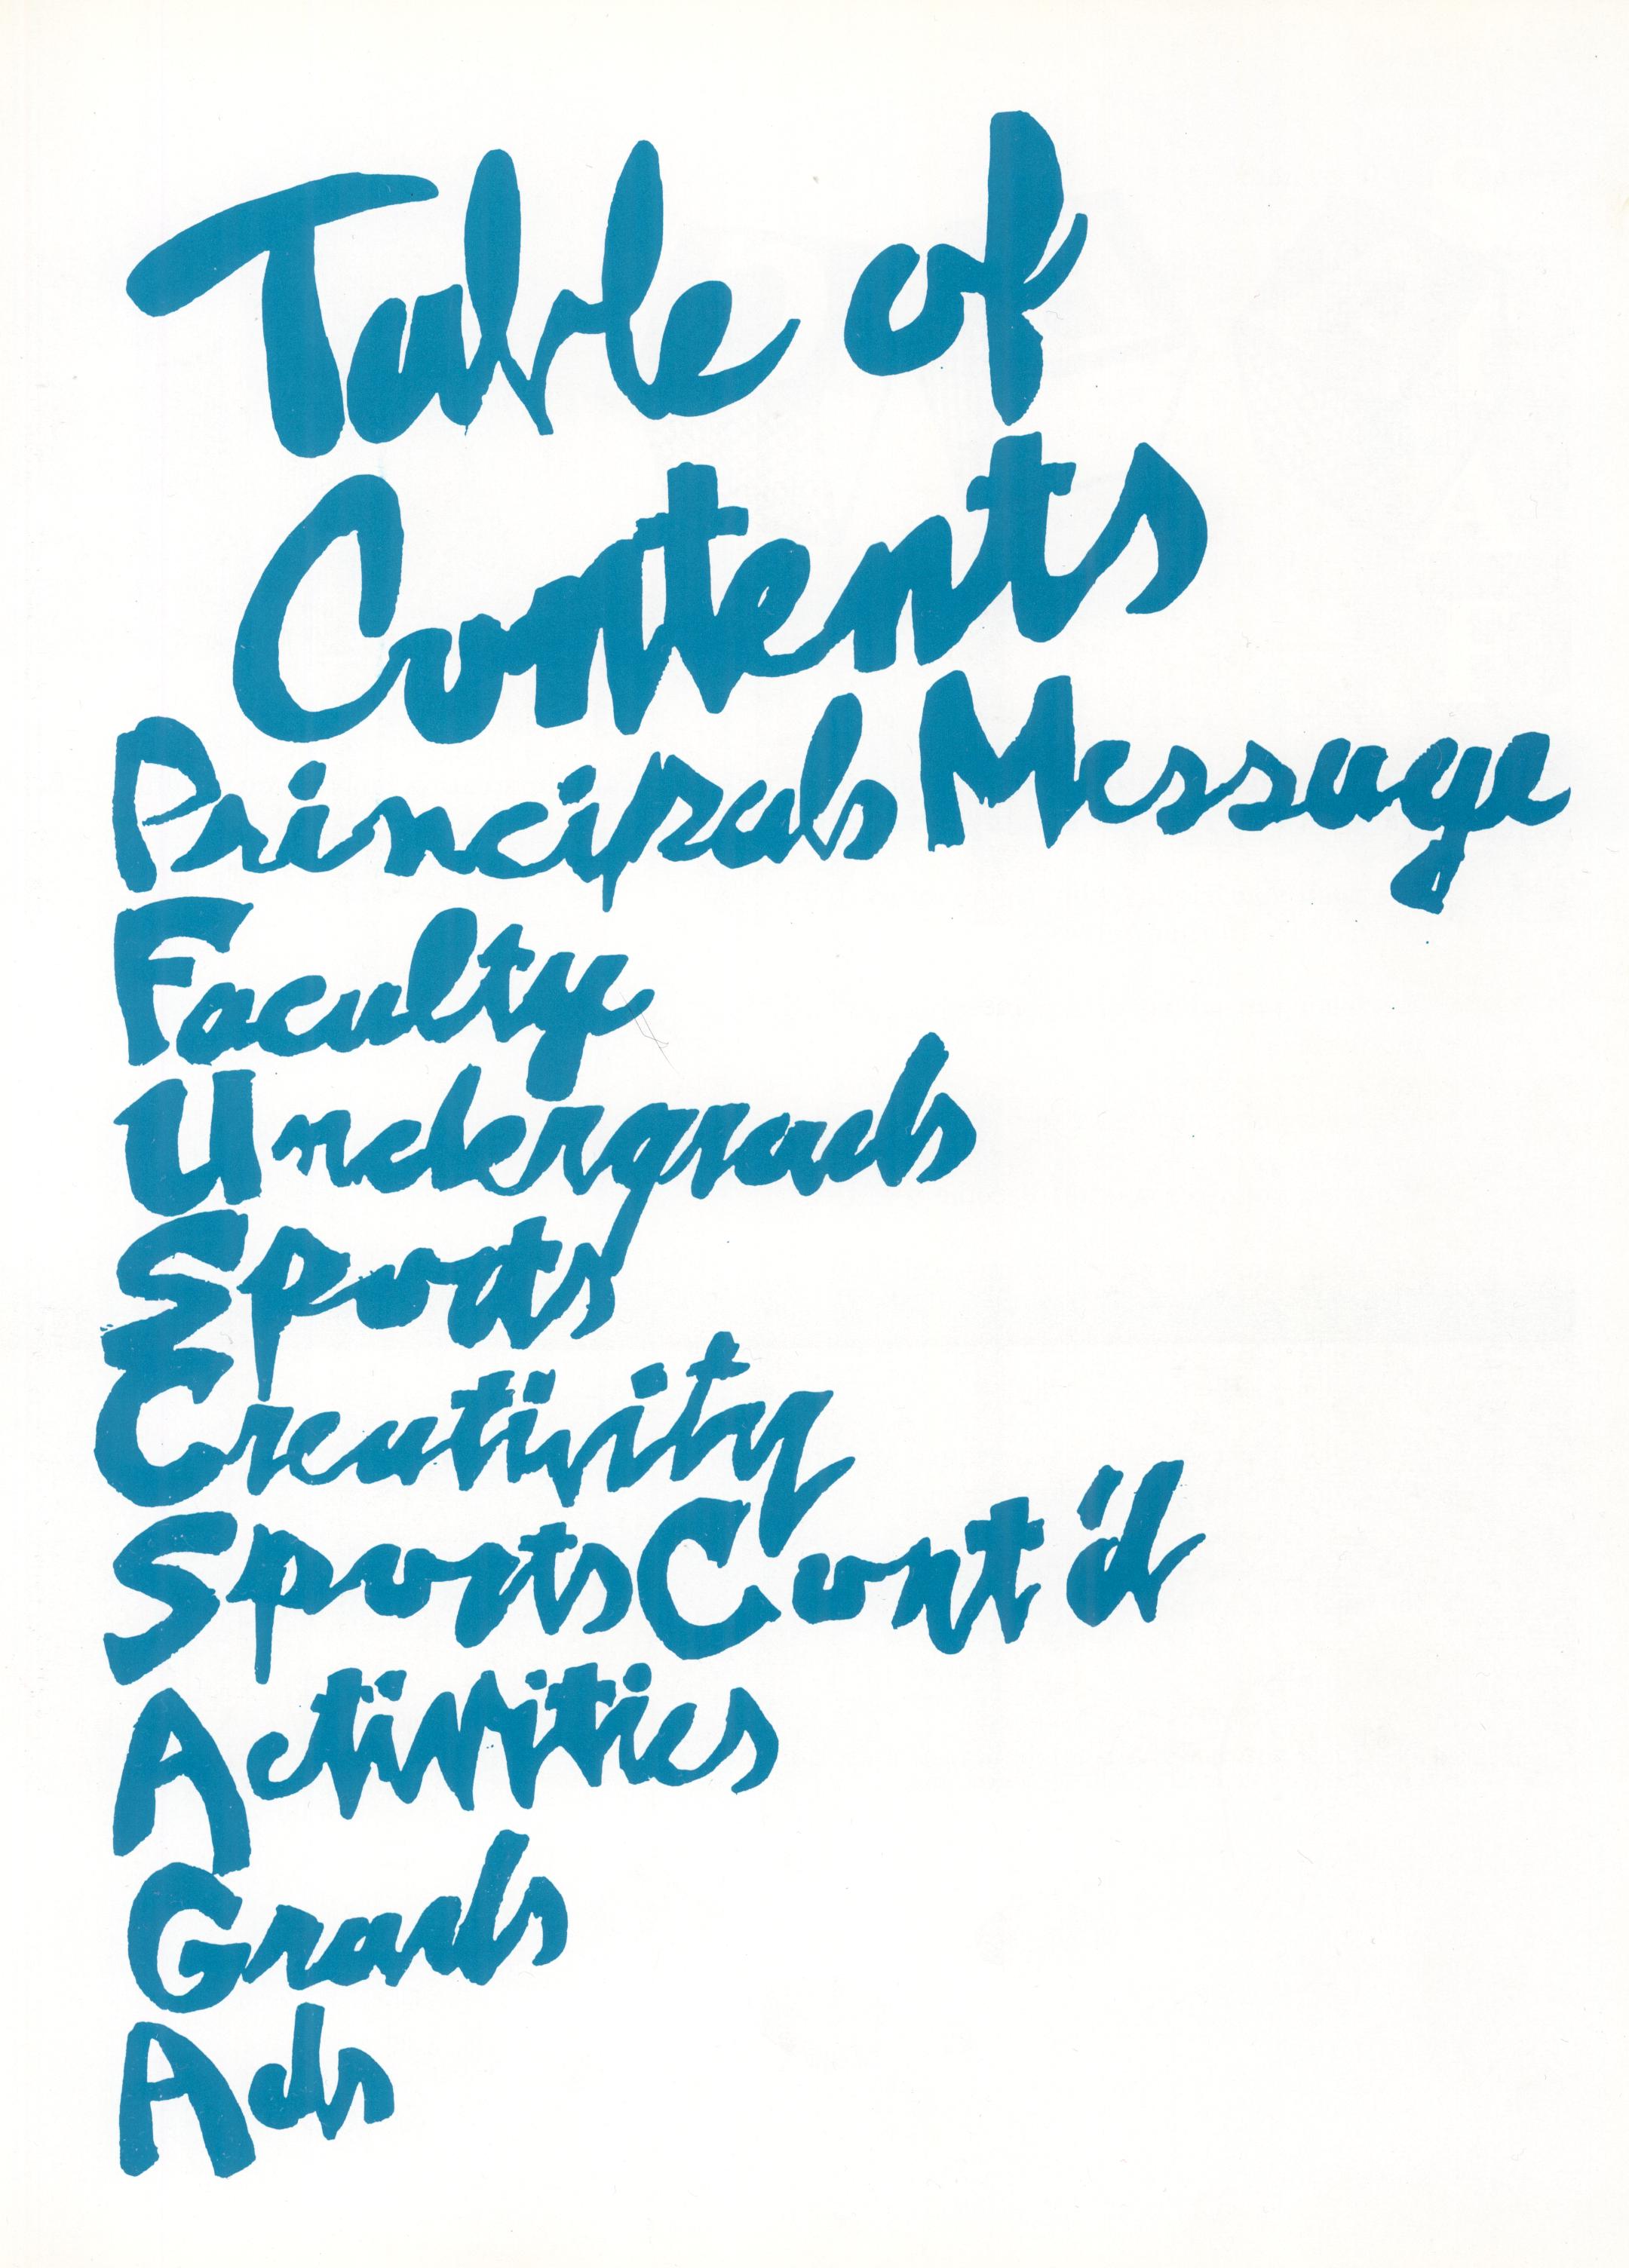 Table of
Contents
Principals Message
Faculty
Undergrads
Sports
Creativity
Sports Cont'd
Activities
Grads
Ads